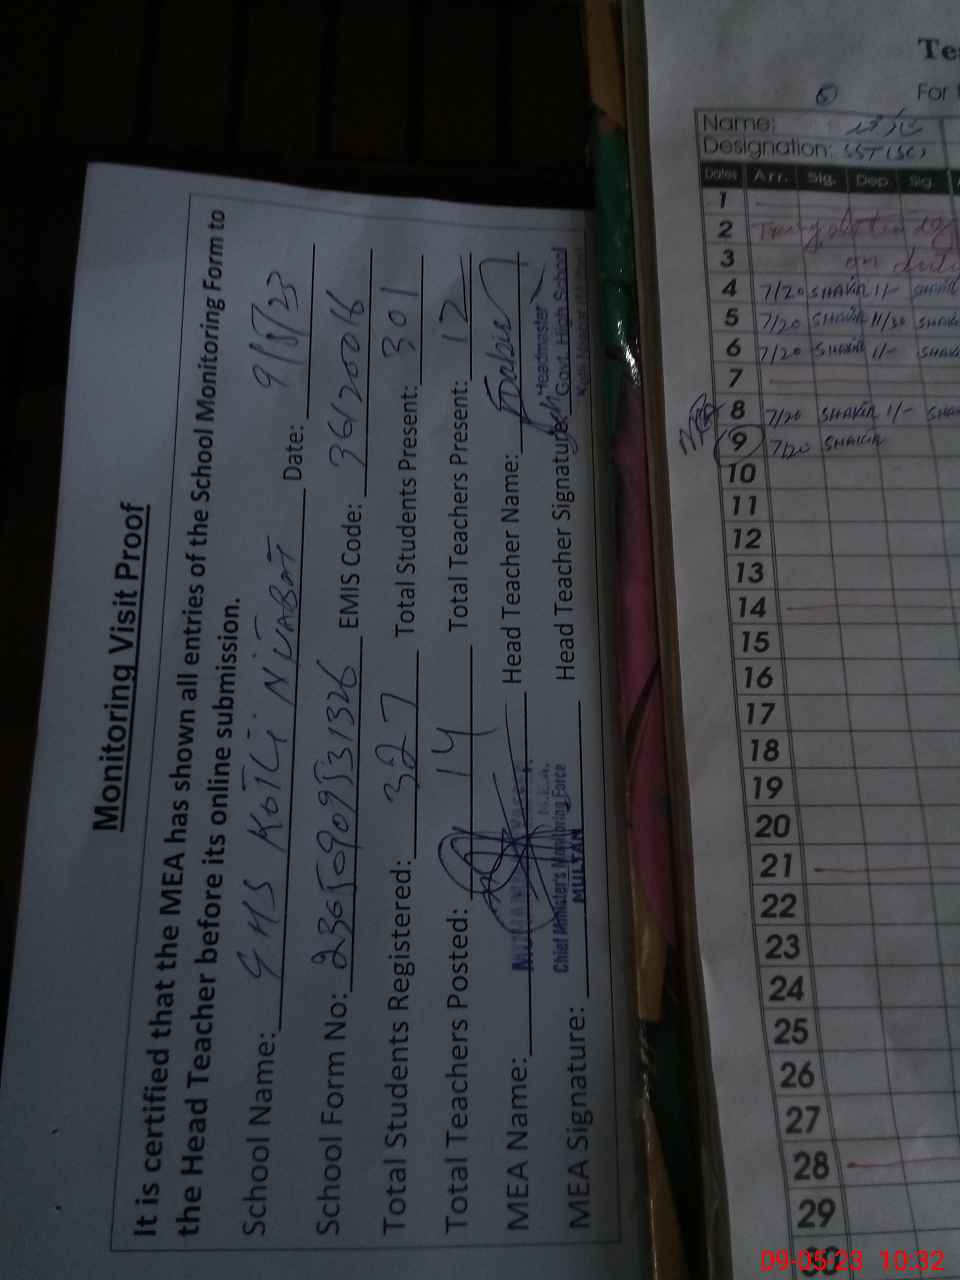 Monitoring Visit Proof
It is certified that the MEA has shown all entries of the School Monitoring Form to
the Head Teacher before its online submission.
School Name: GHS KOTLI NIJABAT Date: 9/5/23
School Form No: EMIS Code: 36120016
Total Students Registered: 327 Total Students Present: 301
Total Teachers Posted: 14 Total Teachers Present: 12
MEA Name: Head Teacher Name:
MEA Signature: Head Teacher Signature:
Chief Minister's Monitoring Force
MULTAN
Headmaster
Govt. High School
For
Name:
Designation: SST (SC)
Dates Arr. Sig. Dep. Sig.
1
2
3 on
4 7/20 SHAKIR 1/-
5 7/20 SHAKIR 11/30
6 7/20 SHAKIR 1/-
7
8 7/20 SHAKIR 1/-
9 7/20 SHAKIR
10
11
12
13
14
15
16
17
18
19
20
21
22
23
24
25
26
27
28
29
30
09-05-23 10:32